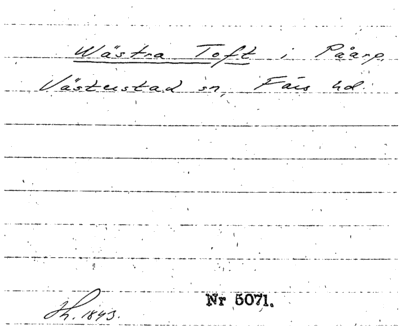 Wästra Toft i Påarp
Västerstad sn, Färs hd.
Nr 5071.
1843.